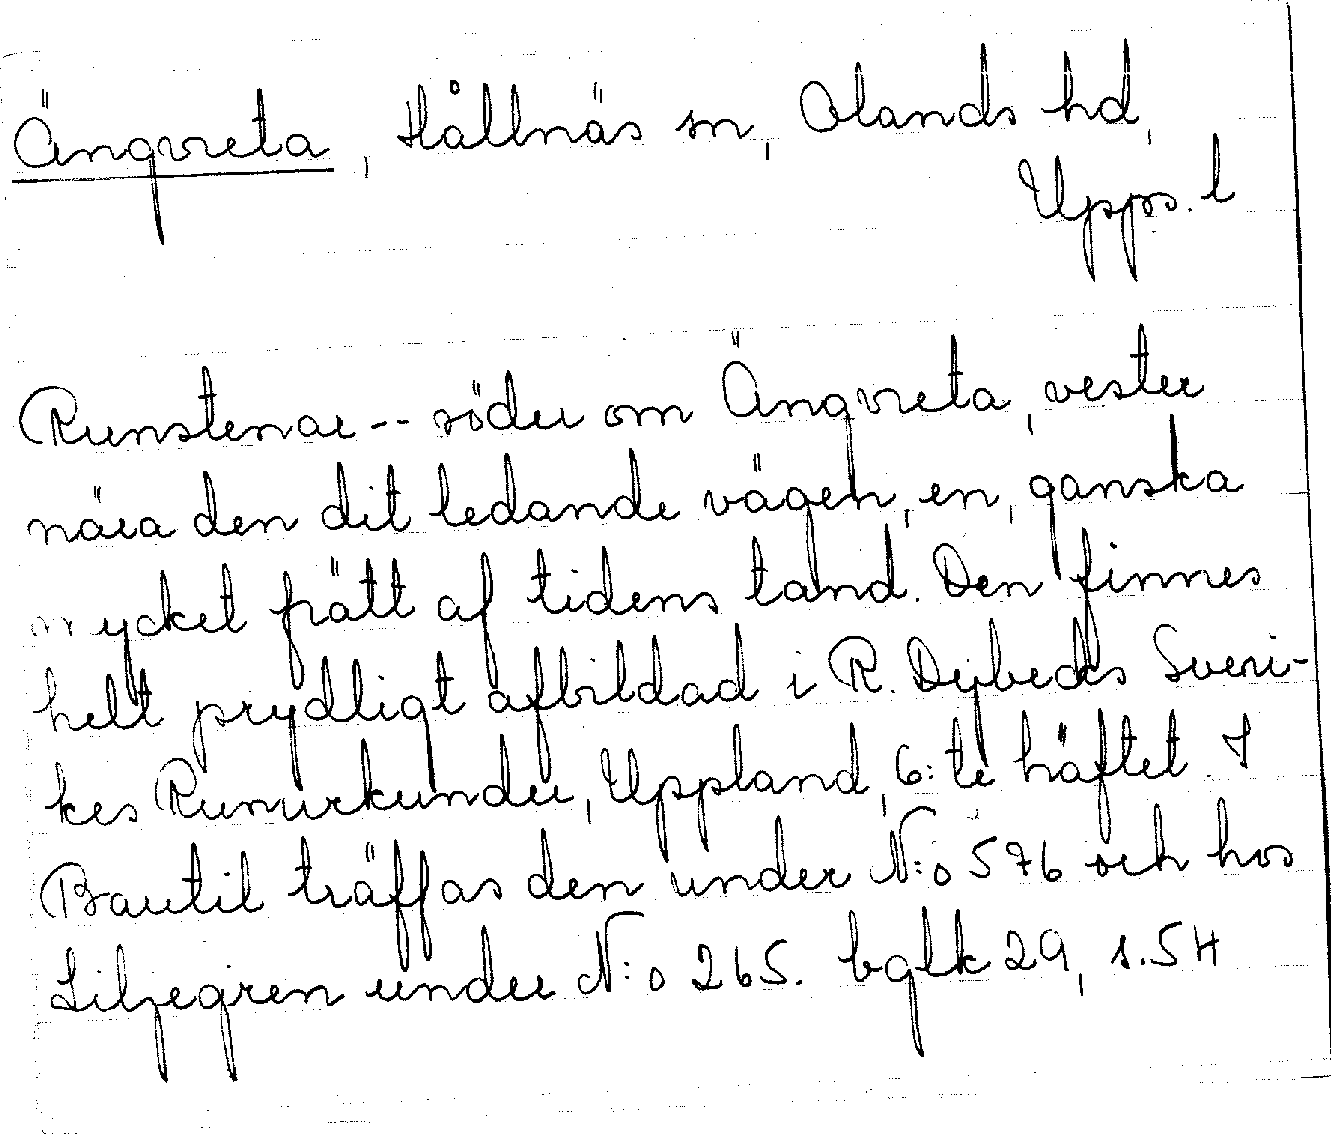 Ängvreta, Hållnäs sn, Olands hd,
Upps. l
Runstenar -- söder om Ängvreta, vester
nära den dit ledande vägen, en, ganska
mycket frätt af tidens tand. Den finnes
helt prydligt afbildad i R. Dybecks Sveri-
kes Runurkunder, Uppland, 6:te häftet. I
Bautil träffas den under N:o 576 och hos
Liljegren under N:o 265. bglk 29, s. 54